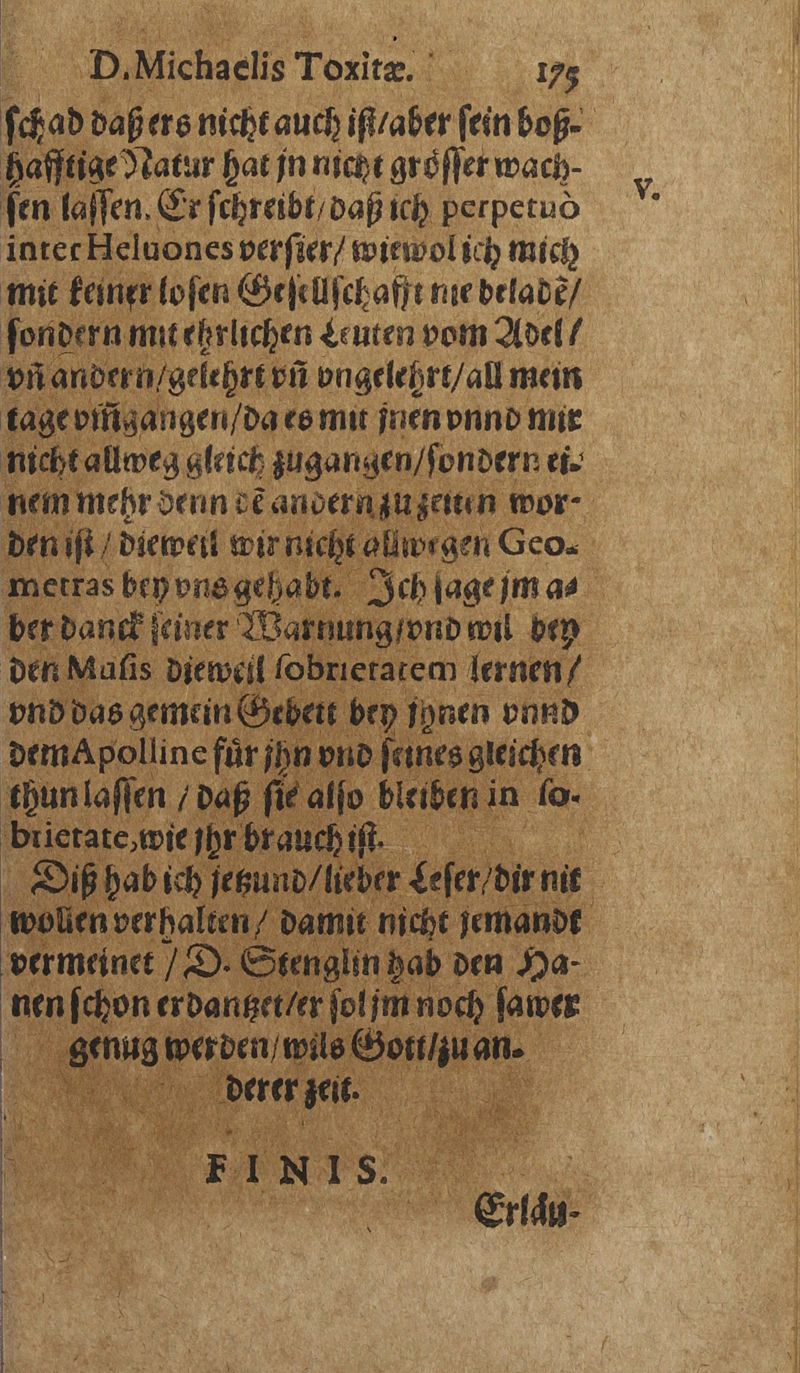 D. Michaelis Toxitæ. 175
ſchad daß ers nicht auch iſt/aber ſein boß-
hafftige Natur hat jn nicht gröſſer wach-
ſen laſſen. Er ſchreibt/daß ich perpetuò
V.
inter Heluones verſier/ wiewol ich mich
mit keiner loſen Geſellſchafft nie beladẽ/
ſondern mit ehrlichen Leuten vom Adel/
vñ andern/gelehrt vñ vngelehrt/all mein
tage vm̃gangen/da es mit jnen vnnd mir
nicht allweg gleich zugangen/ſondern ei-
nem mehr denn dẽ andern zu zeiten wor-
den iſt / dieweil wir nicht allwegen Geo-
metras bey vns gehabt. Ich ſage jm a-
ber danck ſeiner Warnung/vnd wil bey
den Muſis dieweil ſobrietatem lernen/
vnd das gemein Gebett bey jhnen vnnd
dem Apolline für jhn vnd ſeines gleichen
thun laſſen / daß ſie alſo bleiben in ſo-
brietate, wie jhr brauch iſt.
Diß hab ich jetzund/lieber Leſer/dir nit
wollen verhalten/ damit nicht jemandt
vermeinet / D. Stenglin hab den Ha-
nen ſchon erdantzet/er ſol jm noch ſawer
genug werden/wils Gott/zu an-
derer zeit.
FINIS.
Erläu-